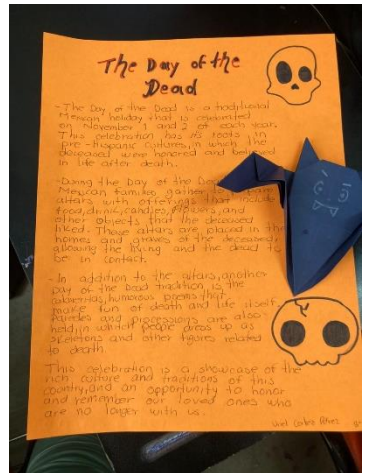 The Day of the
Dead
-The Day of the Dead is a traditional
Mexican holiday that is celebrated
on November 1 and 2 of each year.
This celebration has its roots in
pre-hispanic cultures, in which the
deceased were honored and believed
in life after death.
-During the Day of the
Mexican families gather
altars with offerings that include
food, drink, candies, flowers, and
other objects that the deceased
liked. These altars are placed in the
homes and graves of the deceased,
allowing the living and the dead to
be in contact.
-In addition to the altars, another
Day of the Dead tradition is the
calaveras, humorous poems that
make fun of death and life itself.
Parades and processions are also
held, in which people dress up as
skeletons and other figures related
to death
This celebration is a showcase of the
rich culture and traditions of this
country, and an opportunity to honor
and remember our loved ones who
are no longer with us.